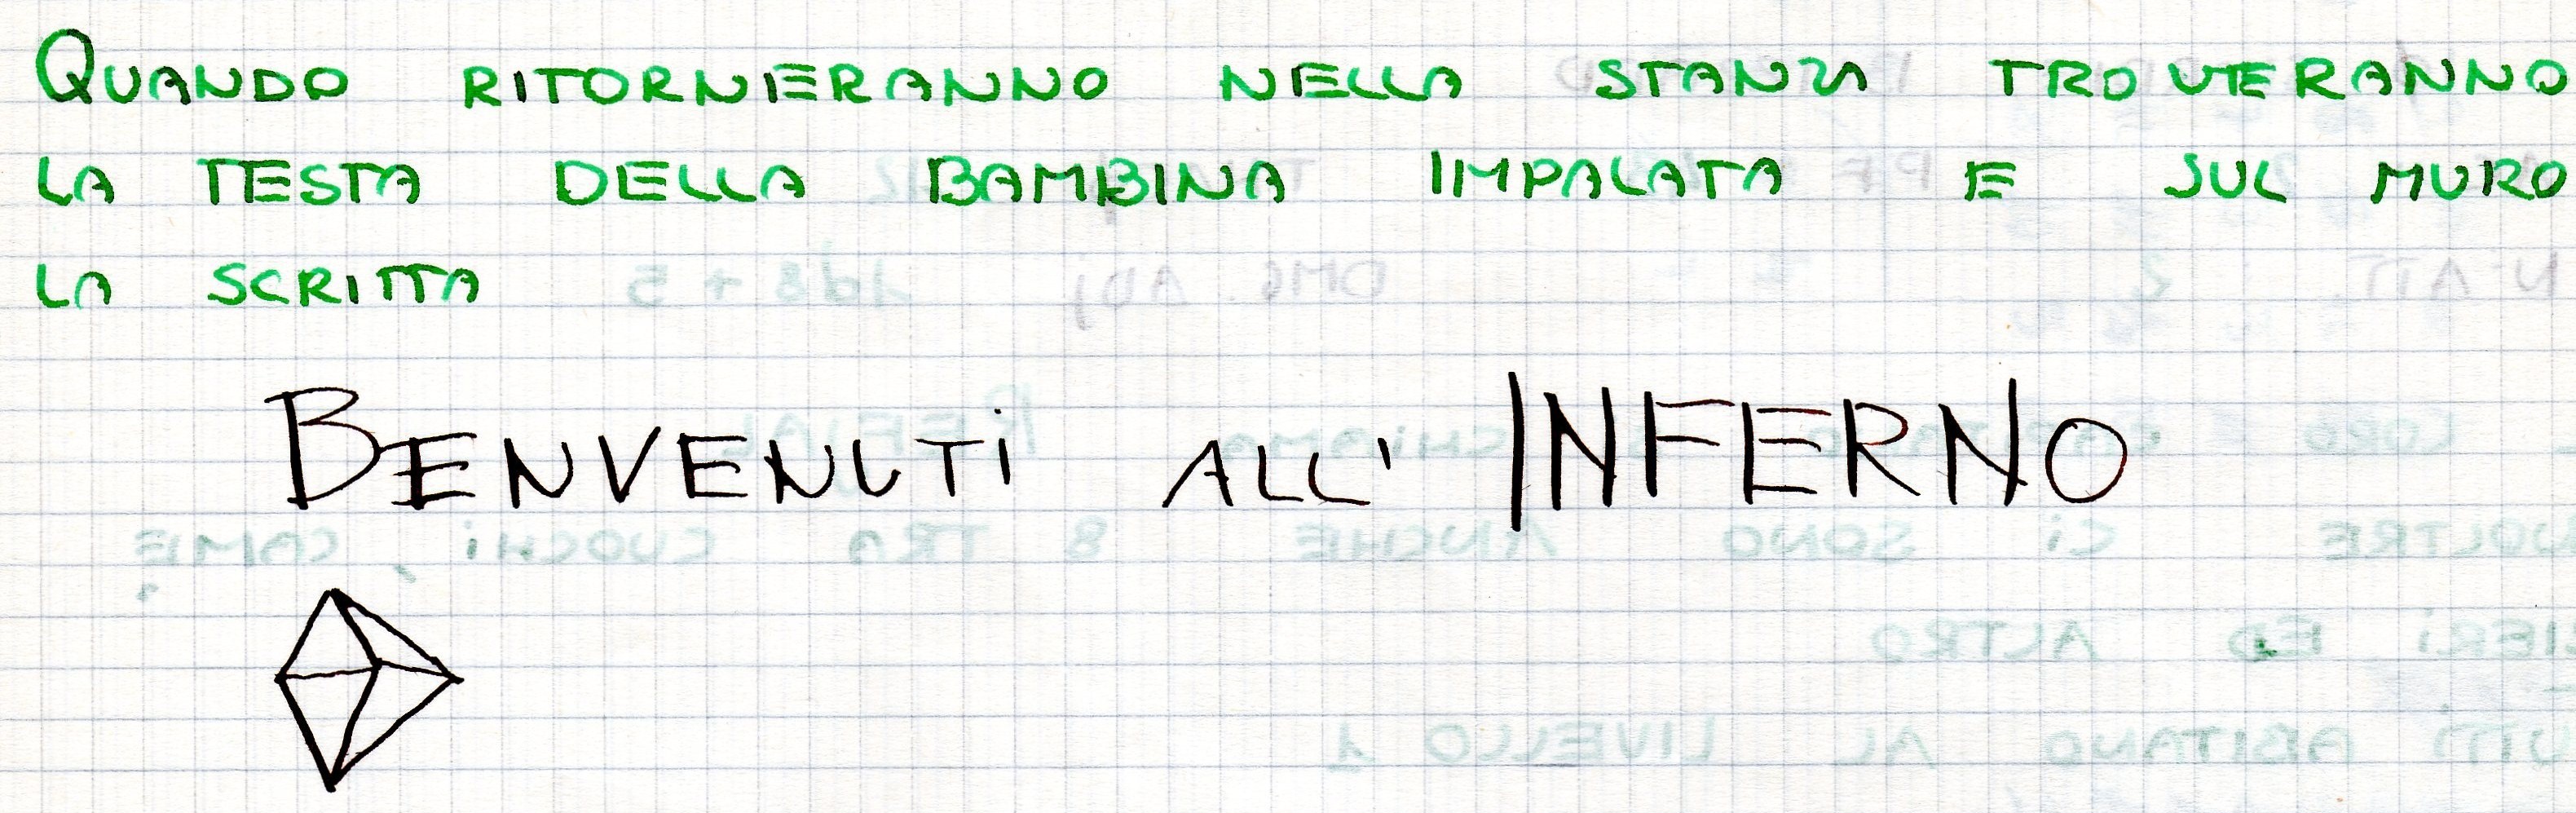 QUANDO RITORNERANNO NELLA STANZA TROVERANNO
LA TESTA DELLA BAMBINA IMPALATA E SUL MURO
LA SCRITTA
BENVENUTi ALL' INFERNO